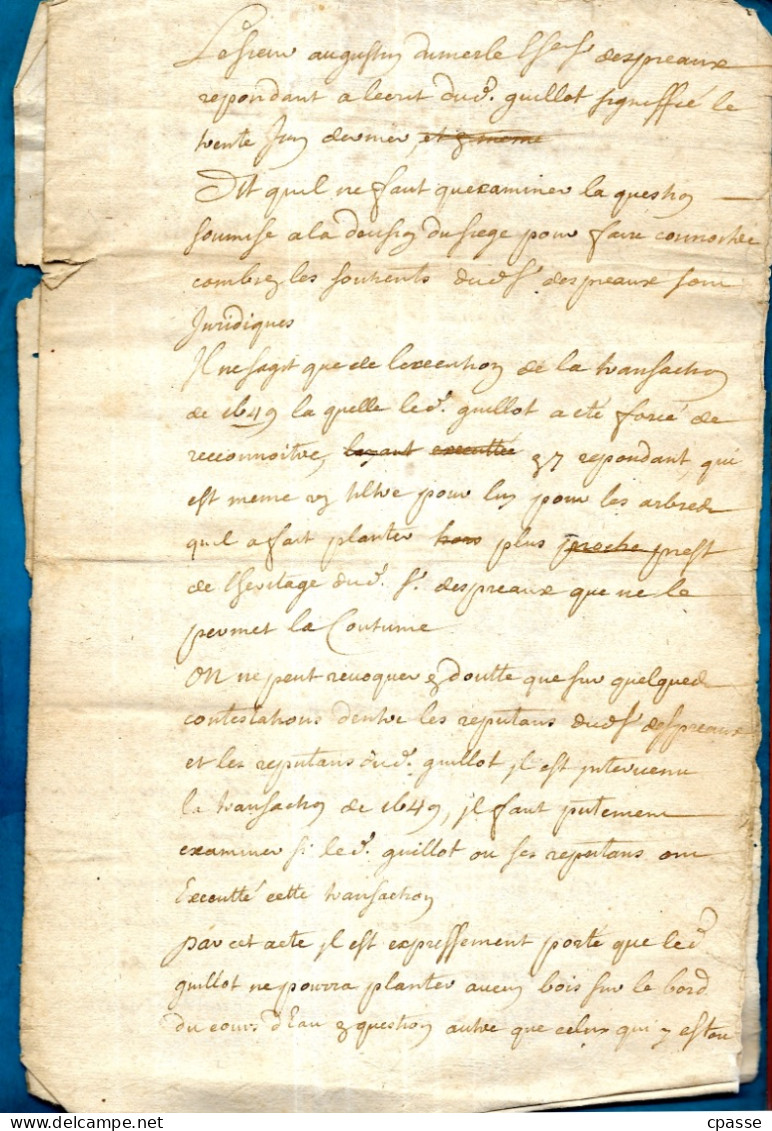 Le sieur augustin dumesle Sr despreaux
repondant a lecrit dud. guillot signiffié le
trente Juin dernier, et y meme
Dit quil ne faut quexaminer la question
soumise a la decision du siege pour faire connoitre
combien les soutients dud Sr. despreaux sont
Juridiques
Il ne sagit que de lexecution de la transaction
de 1649 la quelle led. guillot a eté forcé de
reconnoitre, layant executtée repondant, qui
est meme titre pour luy pour les arbres
quil a fait planter hors plus proche prest
de lheritage dud. Sr. despreaux que ne le
permet la Coutume
On ne peut revoquer en doutte que sur quelques
contestations dentre les reputans dud Sr despreaux
et les reputans dud. guillot jl est jntervenu
la transaction de 1649, jl faut
examiner si led. guillot ou ses reputans ont
Executté cette transaction
par cet acte jl est expressement porté que led
guillot ne pourra planter aucun bois sur le bord
du cours d'Eau en question autre que celuy qui y estou
cpasse